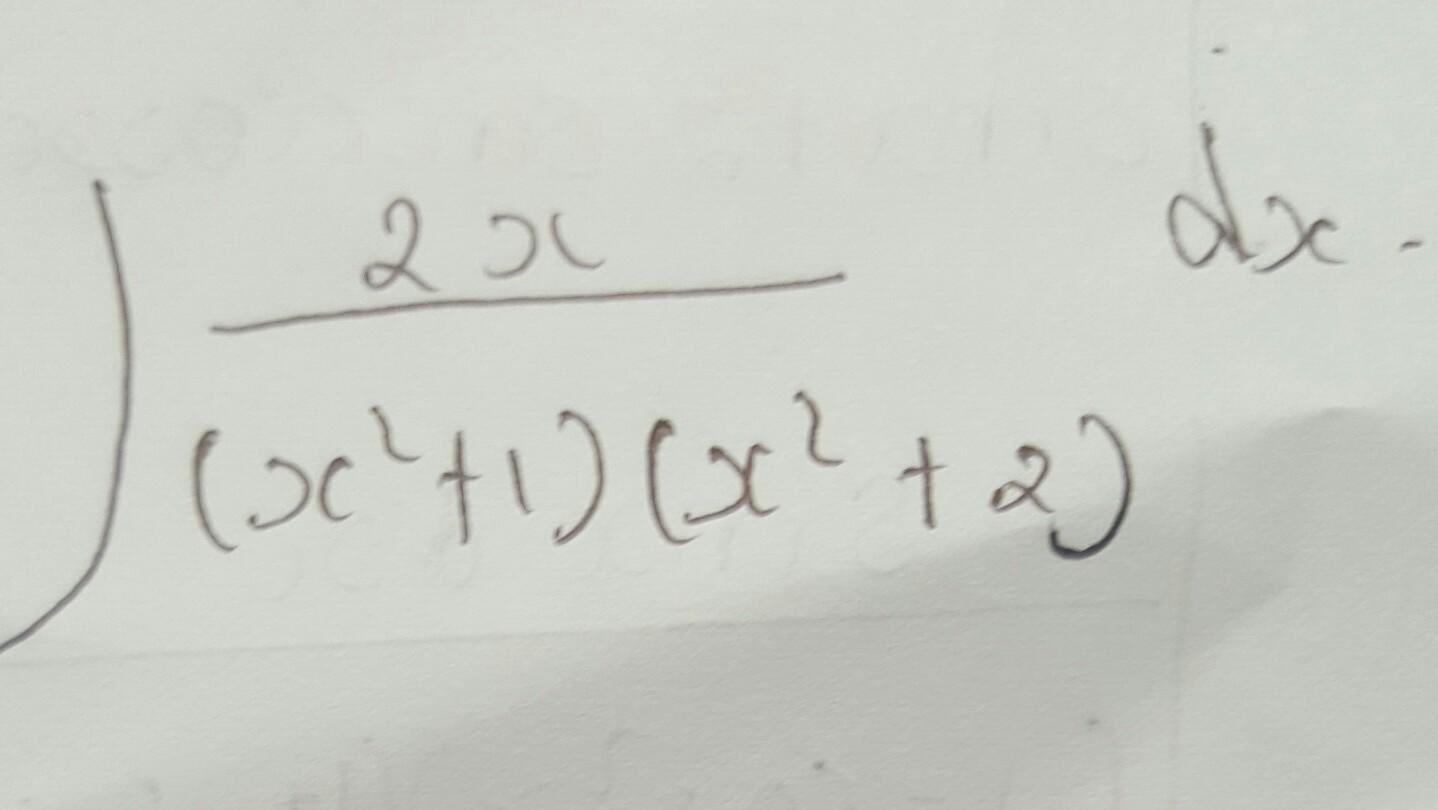 ∫ 2x / (x²+1)(x²+2) dx.